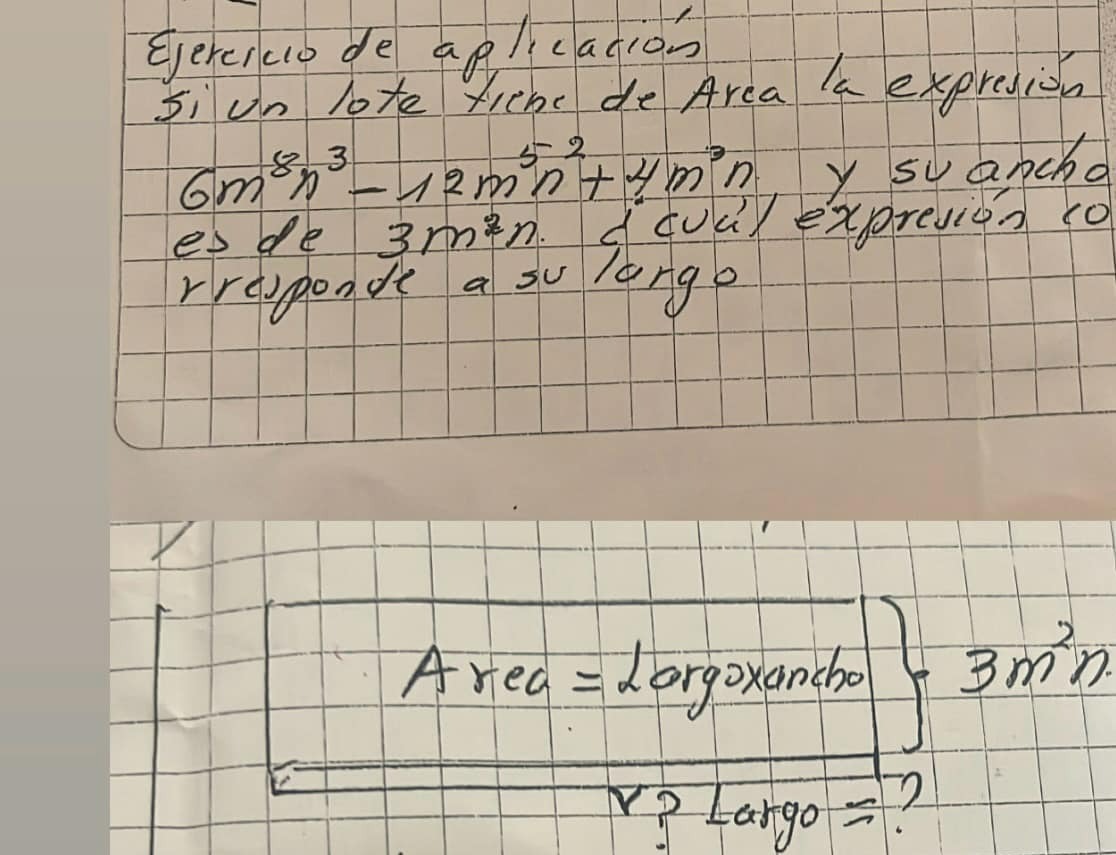 Ejercicio de aplicación
Si un lote tiene de Area la expresión
6m⁸n³ - 12m⁵n² + 4m³n y su ancho
es de 3m²n. ¿cuál expresión co
rresponde a su largo
Area = Largoxancho } 3m²n.
r? Largo = ?